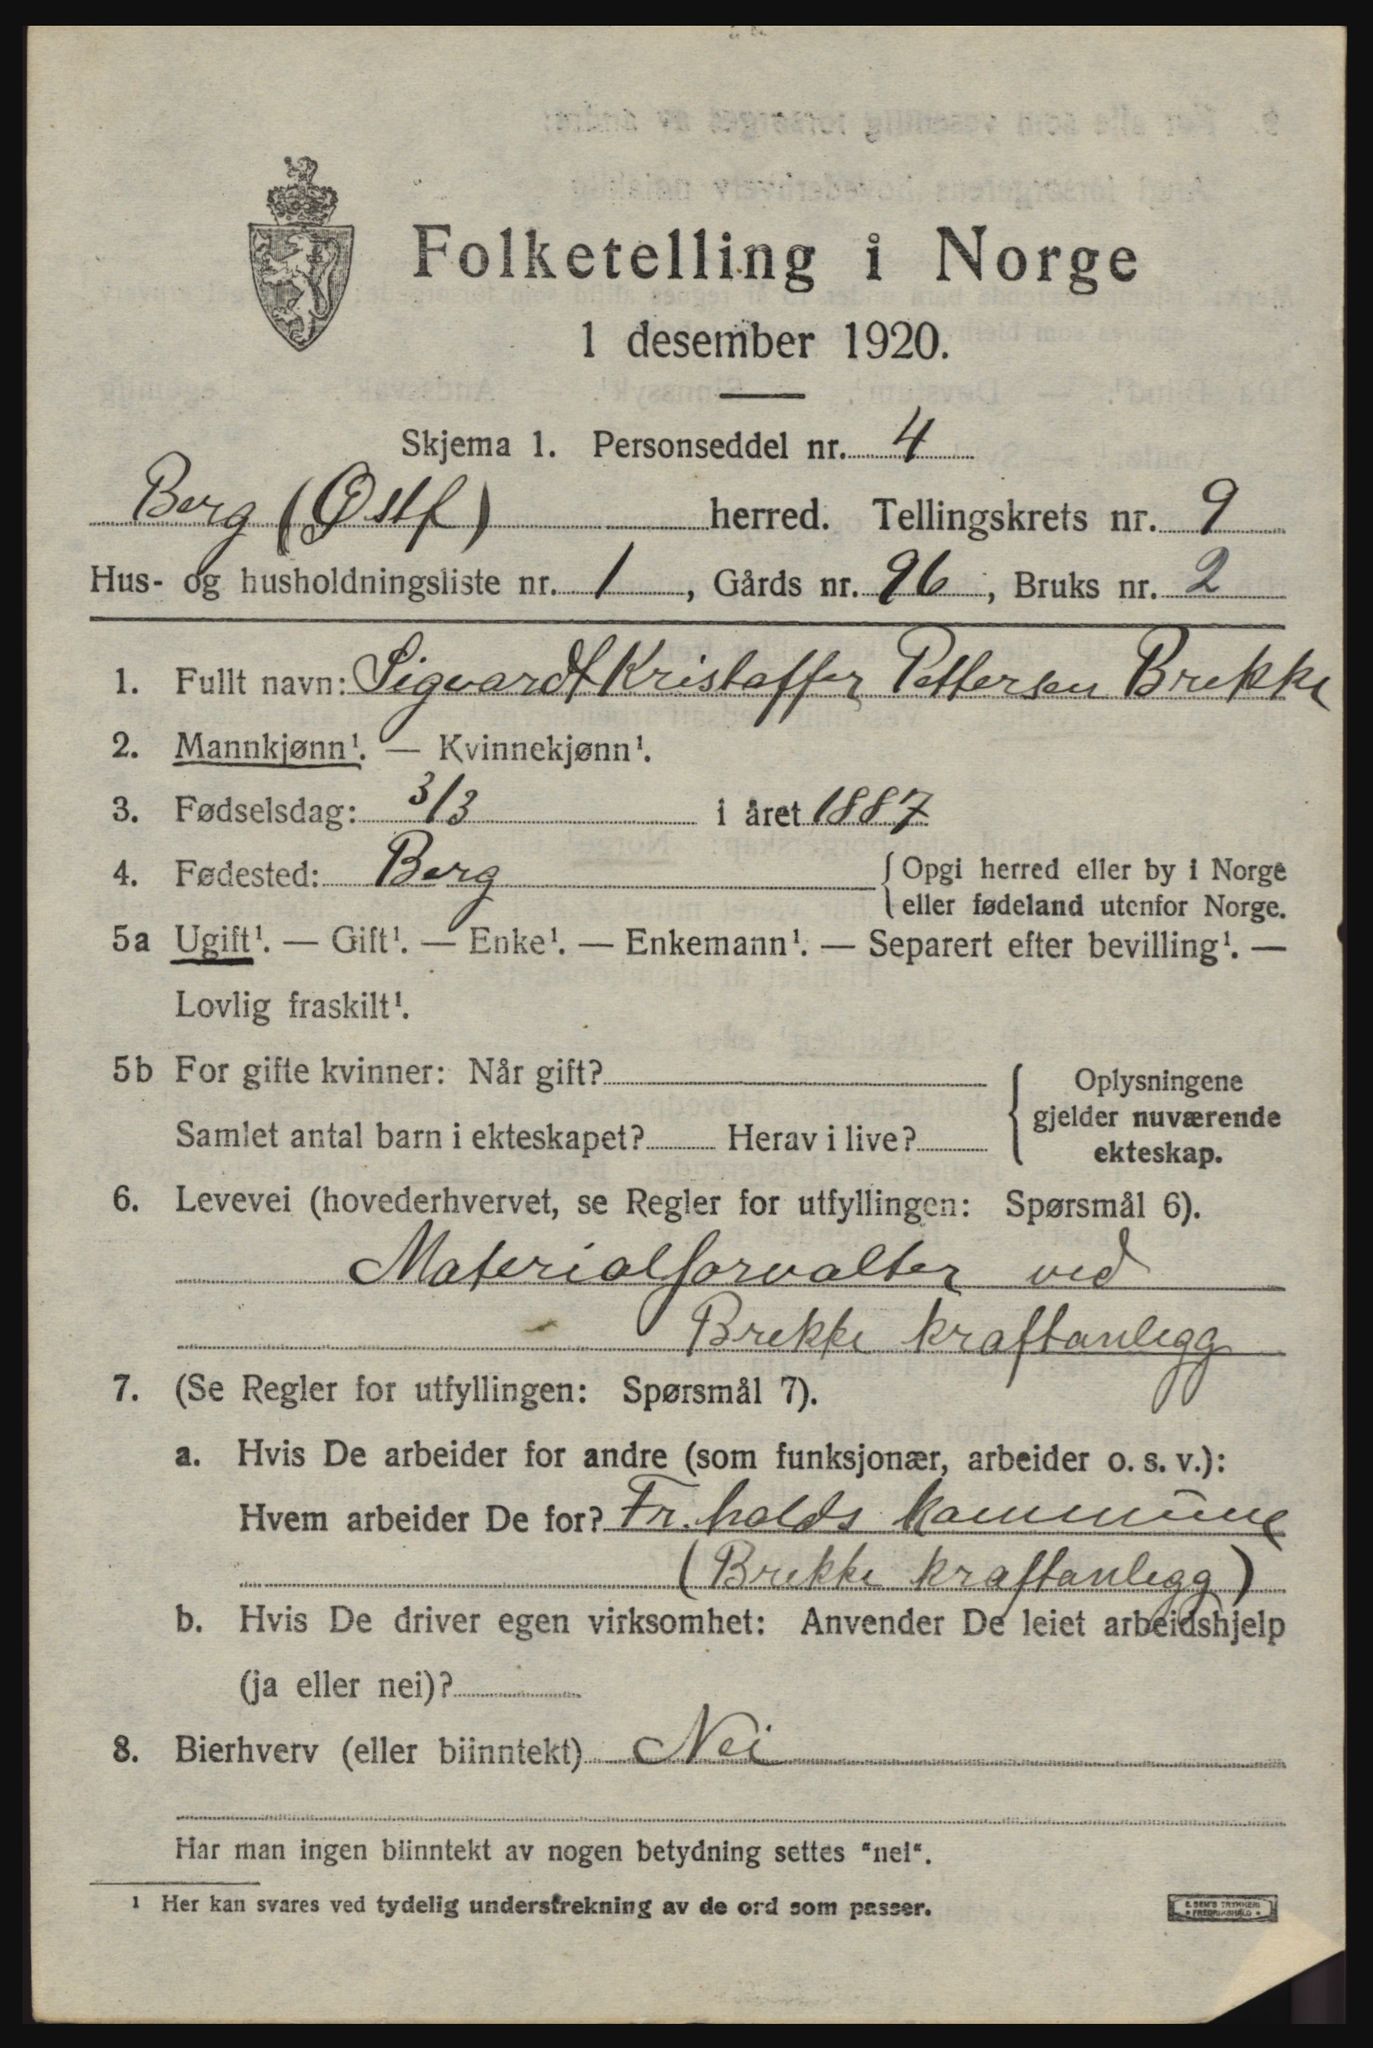 Folketelling i Norge
1 desember 1920.
Skjema 1. Personseddel nr. 4
Berg (Østf) herred. Tellingskrets nr. 9
Hus- og husholdningsliste nr. 1, Gårds nr. 96, Bruks nr. 2
1. Fullt navn: Sigvardt Kristoffer Pettersen Brekke
2. Mannkjønn¹. — Kvinnekjønn¹.
3. Fødselsdag: 3/3 i året 1887
4. Fødested: Berg { Opgi herred eller by i Norge
eller fødeland utenfor Norge.
5a Ugift¹. — Gift¹. — Enke¹. — Enkemann¹. — Separert efter bevilling¹. —
Lovlig fraskilt¹.
5b For gifte kvinner: Når gift?
Samlet antal barn i ekteskapet? Herav i live?
{ Oplysningene
gjelder nuværende
ekteskap.
6. Levevei (hovederhvervet, se Regler for utfyllingen: Spørsmål 6).
Materialforvalter ved
Brekke kraftanlegg
7. (Se Regler for utfyllingen: Spørsmål 7).
a. Hvis De arbeider for andre (som funksjonær, arbeider o. s. v.):
Hvem arbeider De for? Fr.halds kommune
(Brekke kraftanlegg)
b. Hvis De driver egen virksomhet: Anvender De leiet arbeidshjelp
(ja eller nei)?
8. Bierhverv (eller biinntekt) Nei
Har man ingen biinntekt av nogen betydning settes "nei".
¹ Her kan svares ved tydelig understrekning av de ord som passer.
E. SEM'S TRYKKERI
• FREDRIKSHALD •